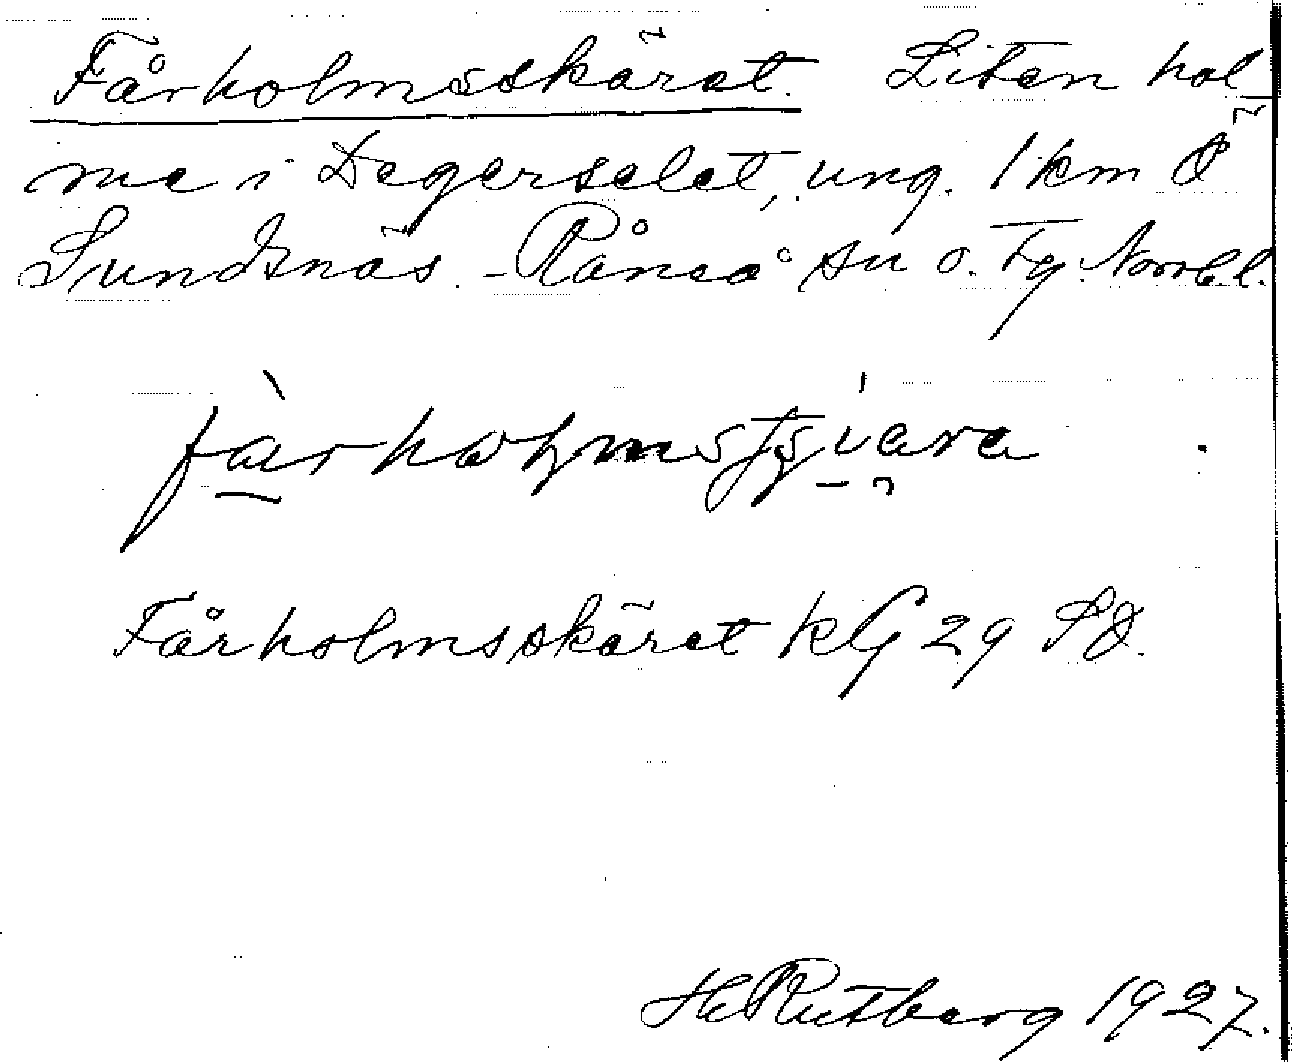 Fårholmsskäret. Liten hol-
me i Degerselet, ung. 1 km Ö
Sundsnäs. - Råneå sn o. Tg. Norrb. l.
fårholmstjväre
Fårholmsskäret KG 29 SO.
H Rutberg 1927.